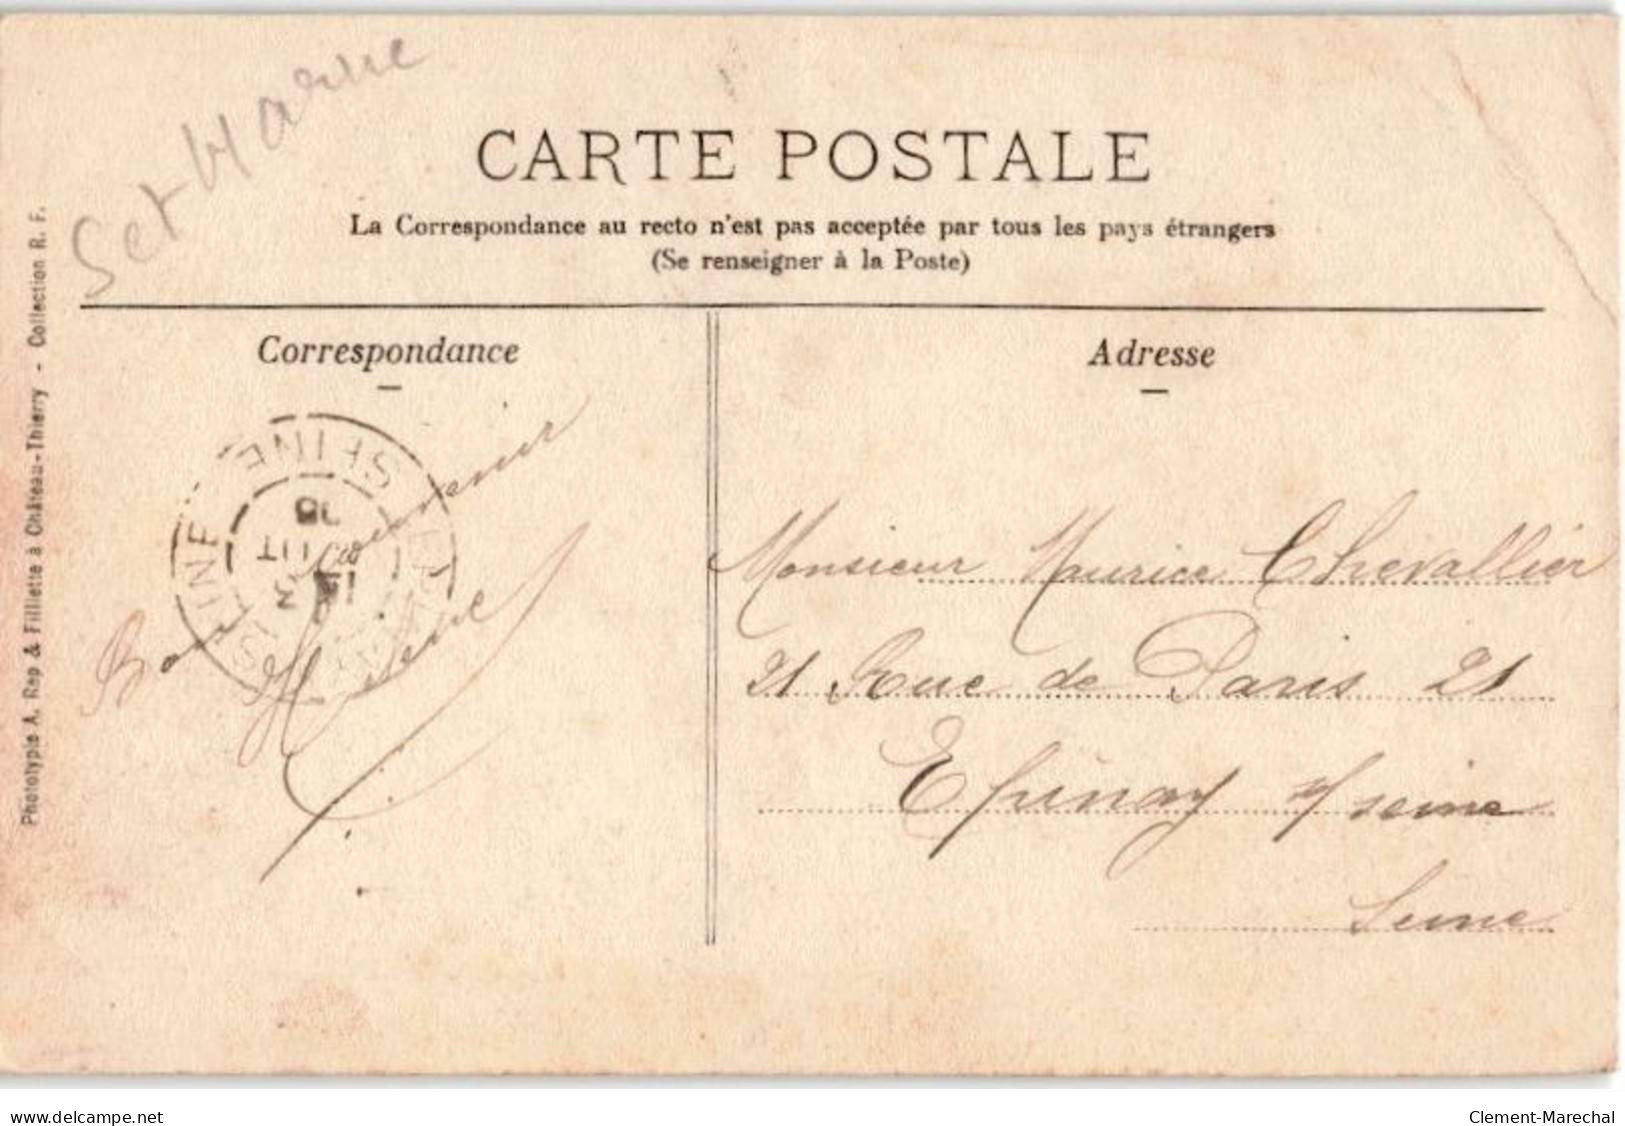 Set Marne
CARTE POSTALE
La Correspondance au recto n'est pas acceptée par tous les pays étrangers
(Se renseigner à la Poste)
Correspondance
Adresse
Phototypie A. Rep & Filliette à Château-Thierry - Collection R. F.
SEINE
Bon souvenir
Monsieur Maurice Chevallier
21 Rue de Paris 21
Epinay s/ seine
Seine
www.delcampe.net
Clement-Marechal